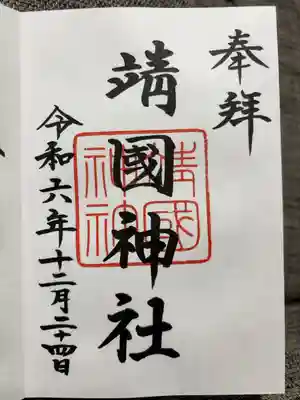 奉拝
靖國神社
靖國神社
令和六年十二月二十四日